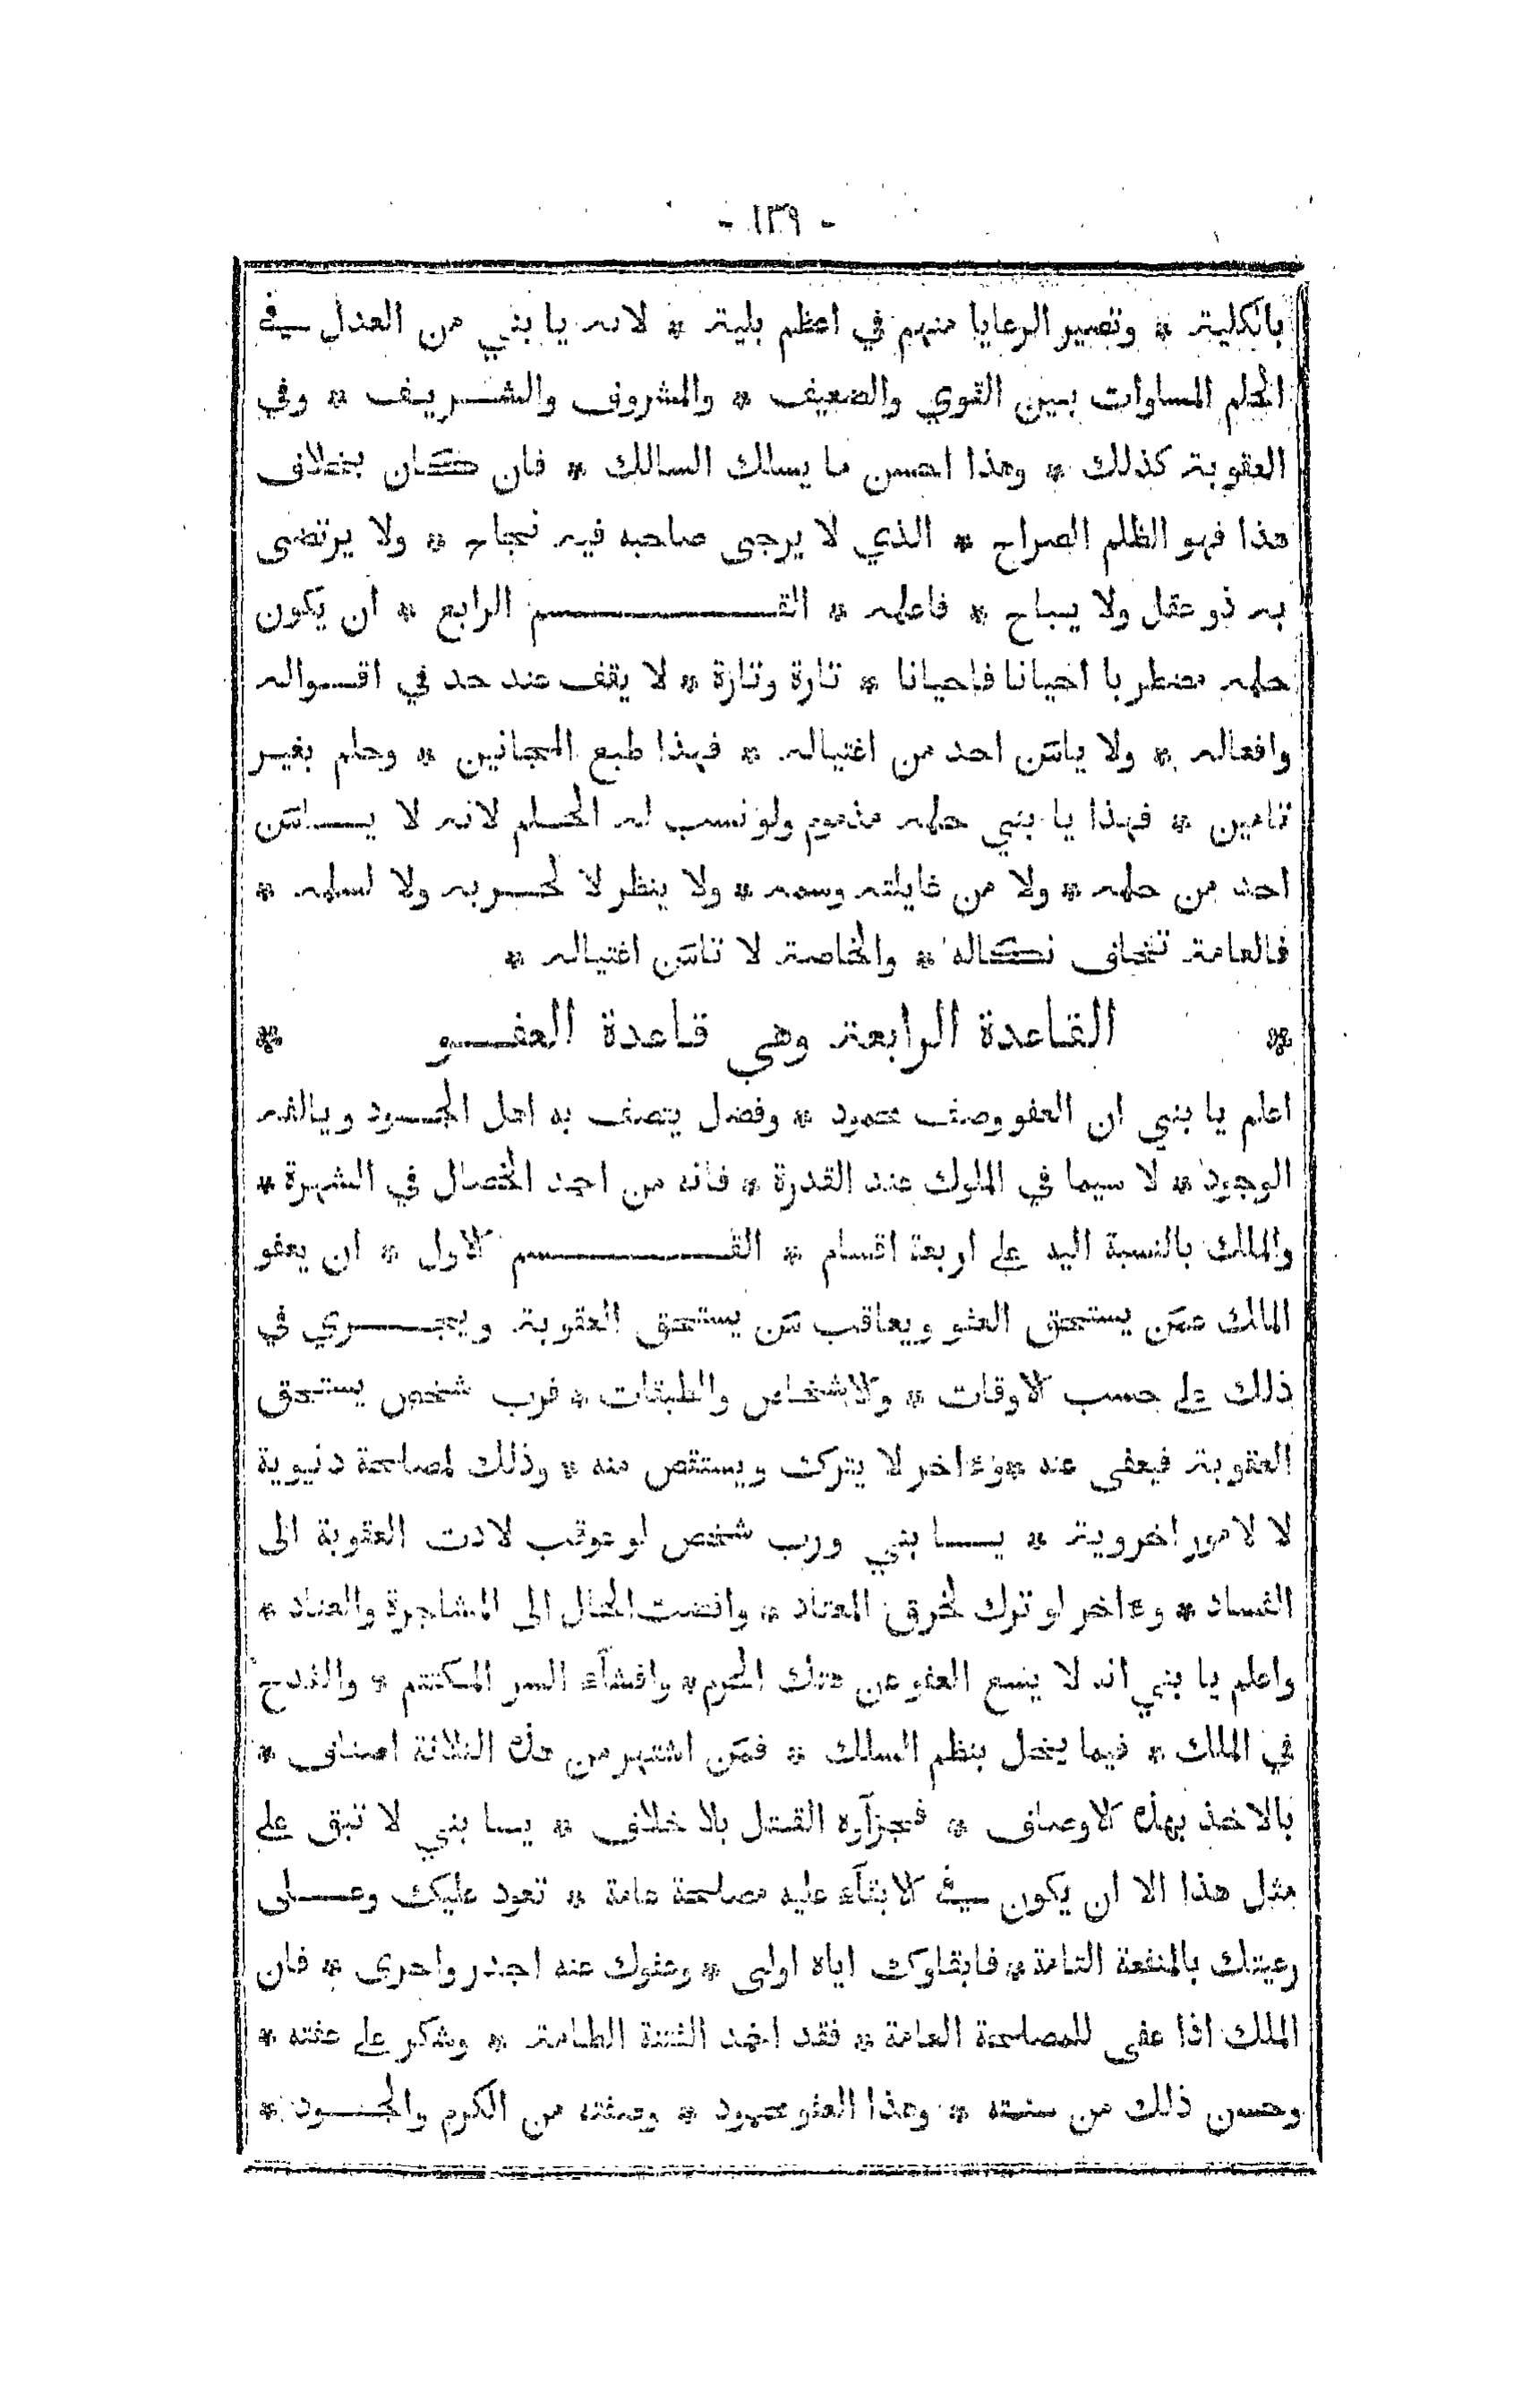 - ١٣٩ -
بالكلية * وتصير الرعايا منهم في اعظم بلية * لانه يا بني من العدل في
الحلم المساوات بين القوي والضعيف * والمشروف والشريف * وفي
العقوبة كذلك * وهذا احسن ما يسلك السالك * فان كان بخلاف
هذا فهو الظلم الصراح * الذي لا يرجى صاحبه فيه نجاح * ولا يرتضى
به ذو عقل ولا يباح * فاعلمه * القسم الرابع * ان يكون
حلمه مضطربا احيانا فاحيانا * تارة وتارة * لا يقف عند حد في اقواله
وافعاله * ولا يامَن احد من اغتياله * فهذا طبع المجانين * وحلم بغير
تامين * فهذا يا بني حلمه مذموم ولو نسب له الحلم لانه لا يامَن
احد من حلمه * ولا من غايلته وسمه * ولا ينظر لا لحربه ولا لسلمه *
فالعامة تخاف نكاله * والخاصة لا تامَن اغتياله *
* القاعدة الرابعة وهي قاعدة العفو *
اعلم يا بني ان العفو وصف محمود * وفضل يتصف به اهل الجود ويالفه
الوجود * لا سيما في الملوك عند القدرة * فانه من احمد الخصال في الشهرة *
والملك بالنسبة اليه على اربعة اقسام * القسم الاول * ان يعفو
الملك عمَن يستحق العفو ويعاقب مَن يستحق العقوبة ويجري في
ذلك على حسب الاوقات * والاشخاص والطبقات * فرب شخص يستحق
العقوبة فيعفى عنه * وءاخر لا يترك ويستقص منه * وذلك لمصلحة دنيوية
لا لامور اخروية * يا بني ورب شخص لو عوقب لادت العقوبة الى
الفساد * وءاخر لو ترك لخرق المعتاد * وافضت الحال الى المشاجرة والعناد *
واعلم يا بني انه لا ينبع العفو عن هتك الحرم * وافشآء السر المكتتم * والقدح
في الملك * فيما يخل بنظم السلك * فمَن اشتهر من هذه الثلاثة اصناف *
بالاخذ بهذه الاوصاف * فجزآوه القتل بلا خلاف * يا بني لا تبق على
مثل هذا الا ان يكون في الابقآء عليه مصلحة عامة * تعود عليك وعلى
رعيتك بالمنفعة التامة * فابقاوك اياه اولى * وعفوك عنه اجدر واحرى * فان
الملك اذا عفى للمصلحة العامة * فقد اخمد الفتنة الطامة * وشكر على عفته *
وحسن ذلك من سنته * وهذا العفو محمود * وصفته من الكرم والجود *